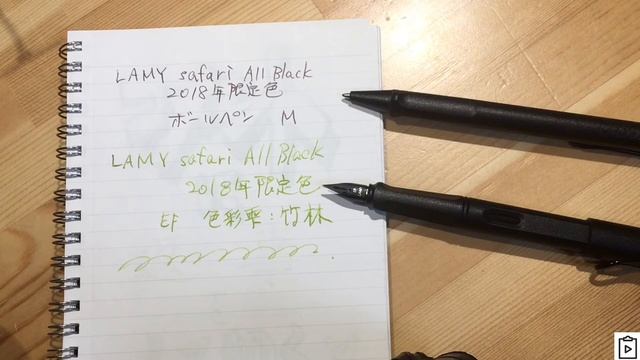 LAMY safari All Black
2018年限定色
ボールペン M
LAMY safari All Black
2018年限定色
EF 色彩雫:竹林